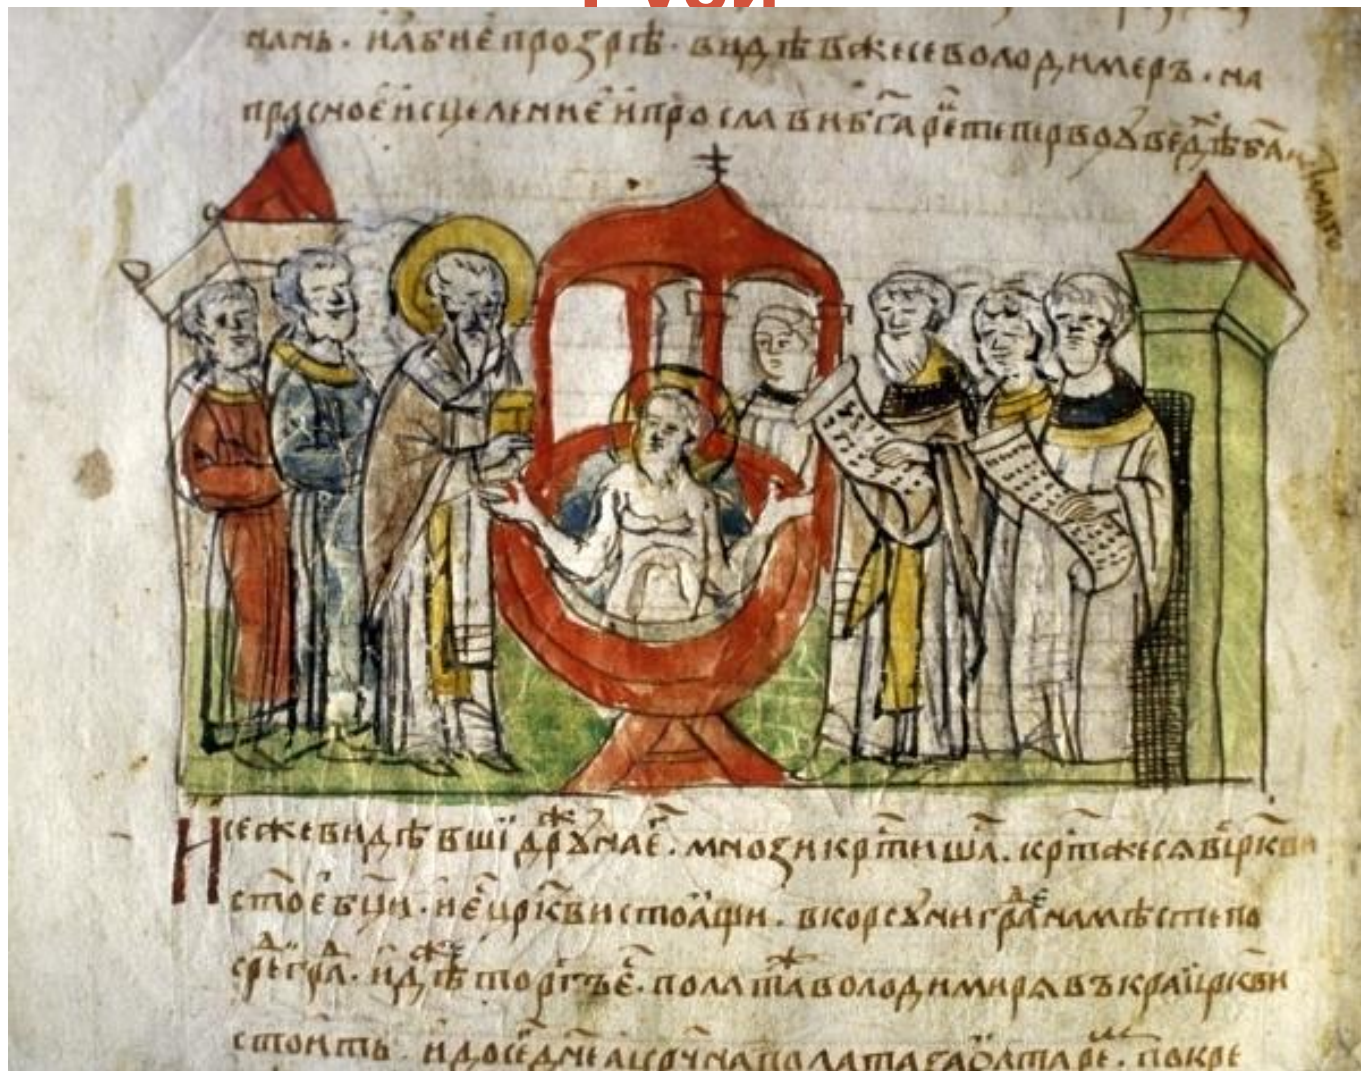 Руси
мань · и абие прозрѣ · видѣвжесеволодимеръ · на
прасноеисцеление и прослави бга ре тепервоувѣдѣхъ ба
Исежевидѣвшї дружнае · мнози кртишѧ · кртжесѧ вцркви
стое бци · и е цркви стоѧщи · вкорсуниграде намѣстепо
среград · идѣже торгъ е · полата володимирѧ въкраїцркви
стоить · и досегднеа полата заолтаре · покре